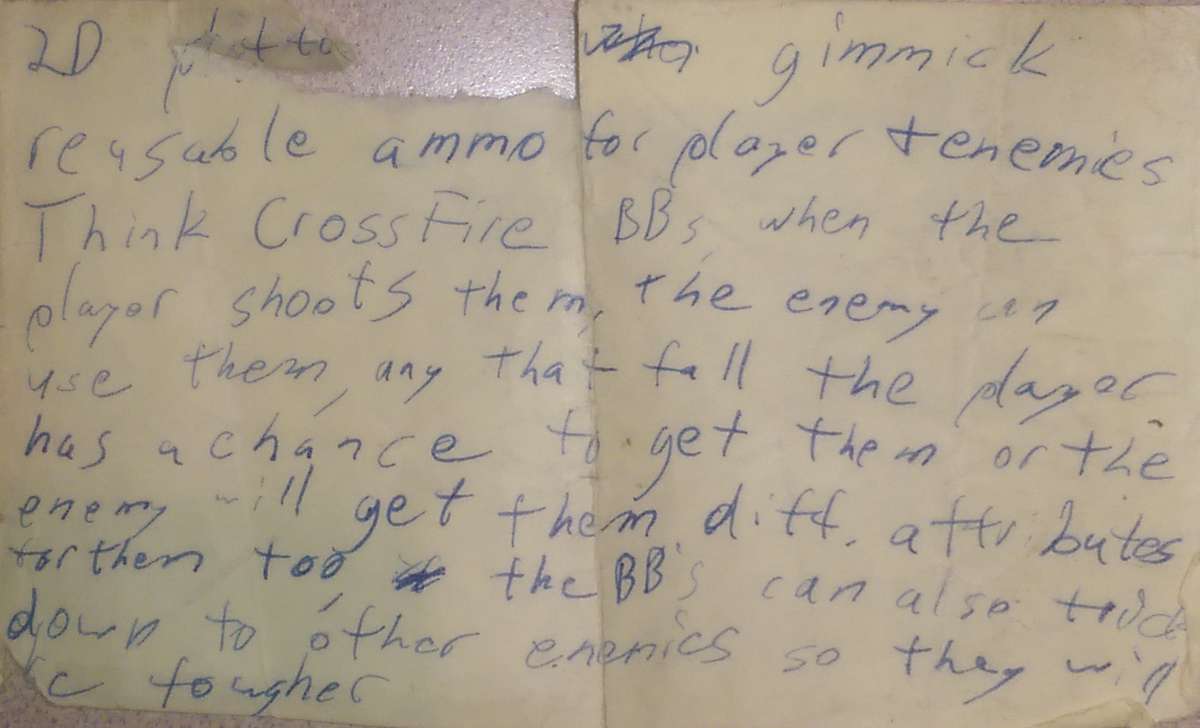 2D gimmick
reusable ammo for player + enemies
Think CrossFire BBs, when the
player shoots them, the enemy can
use them, any that fall the player
has a chance to get them or the
enemy will get them. diff. attributes
for them too, the BB's can also
down to other enemies so they will
tougher